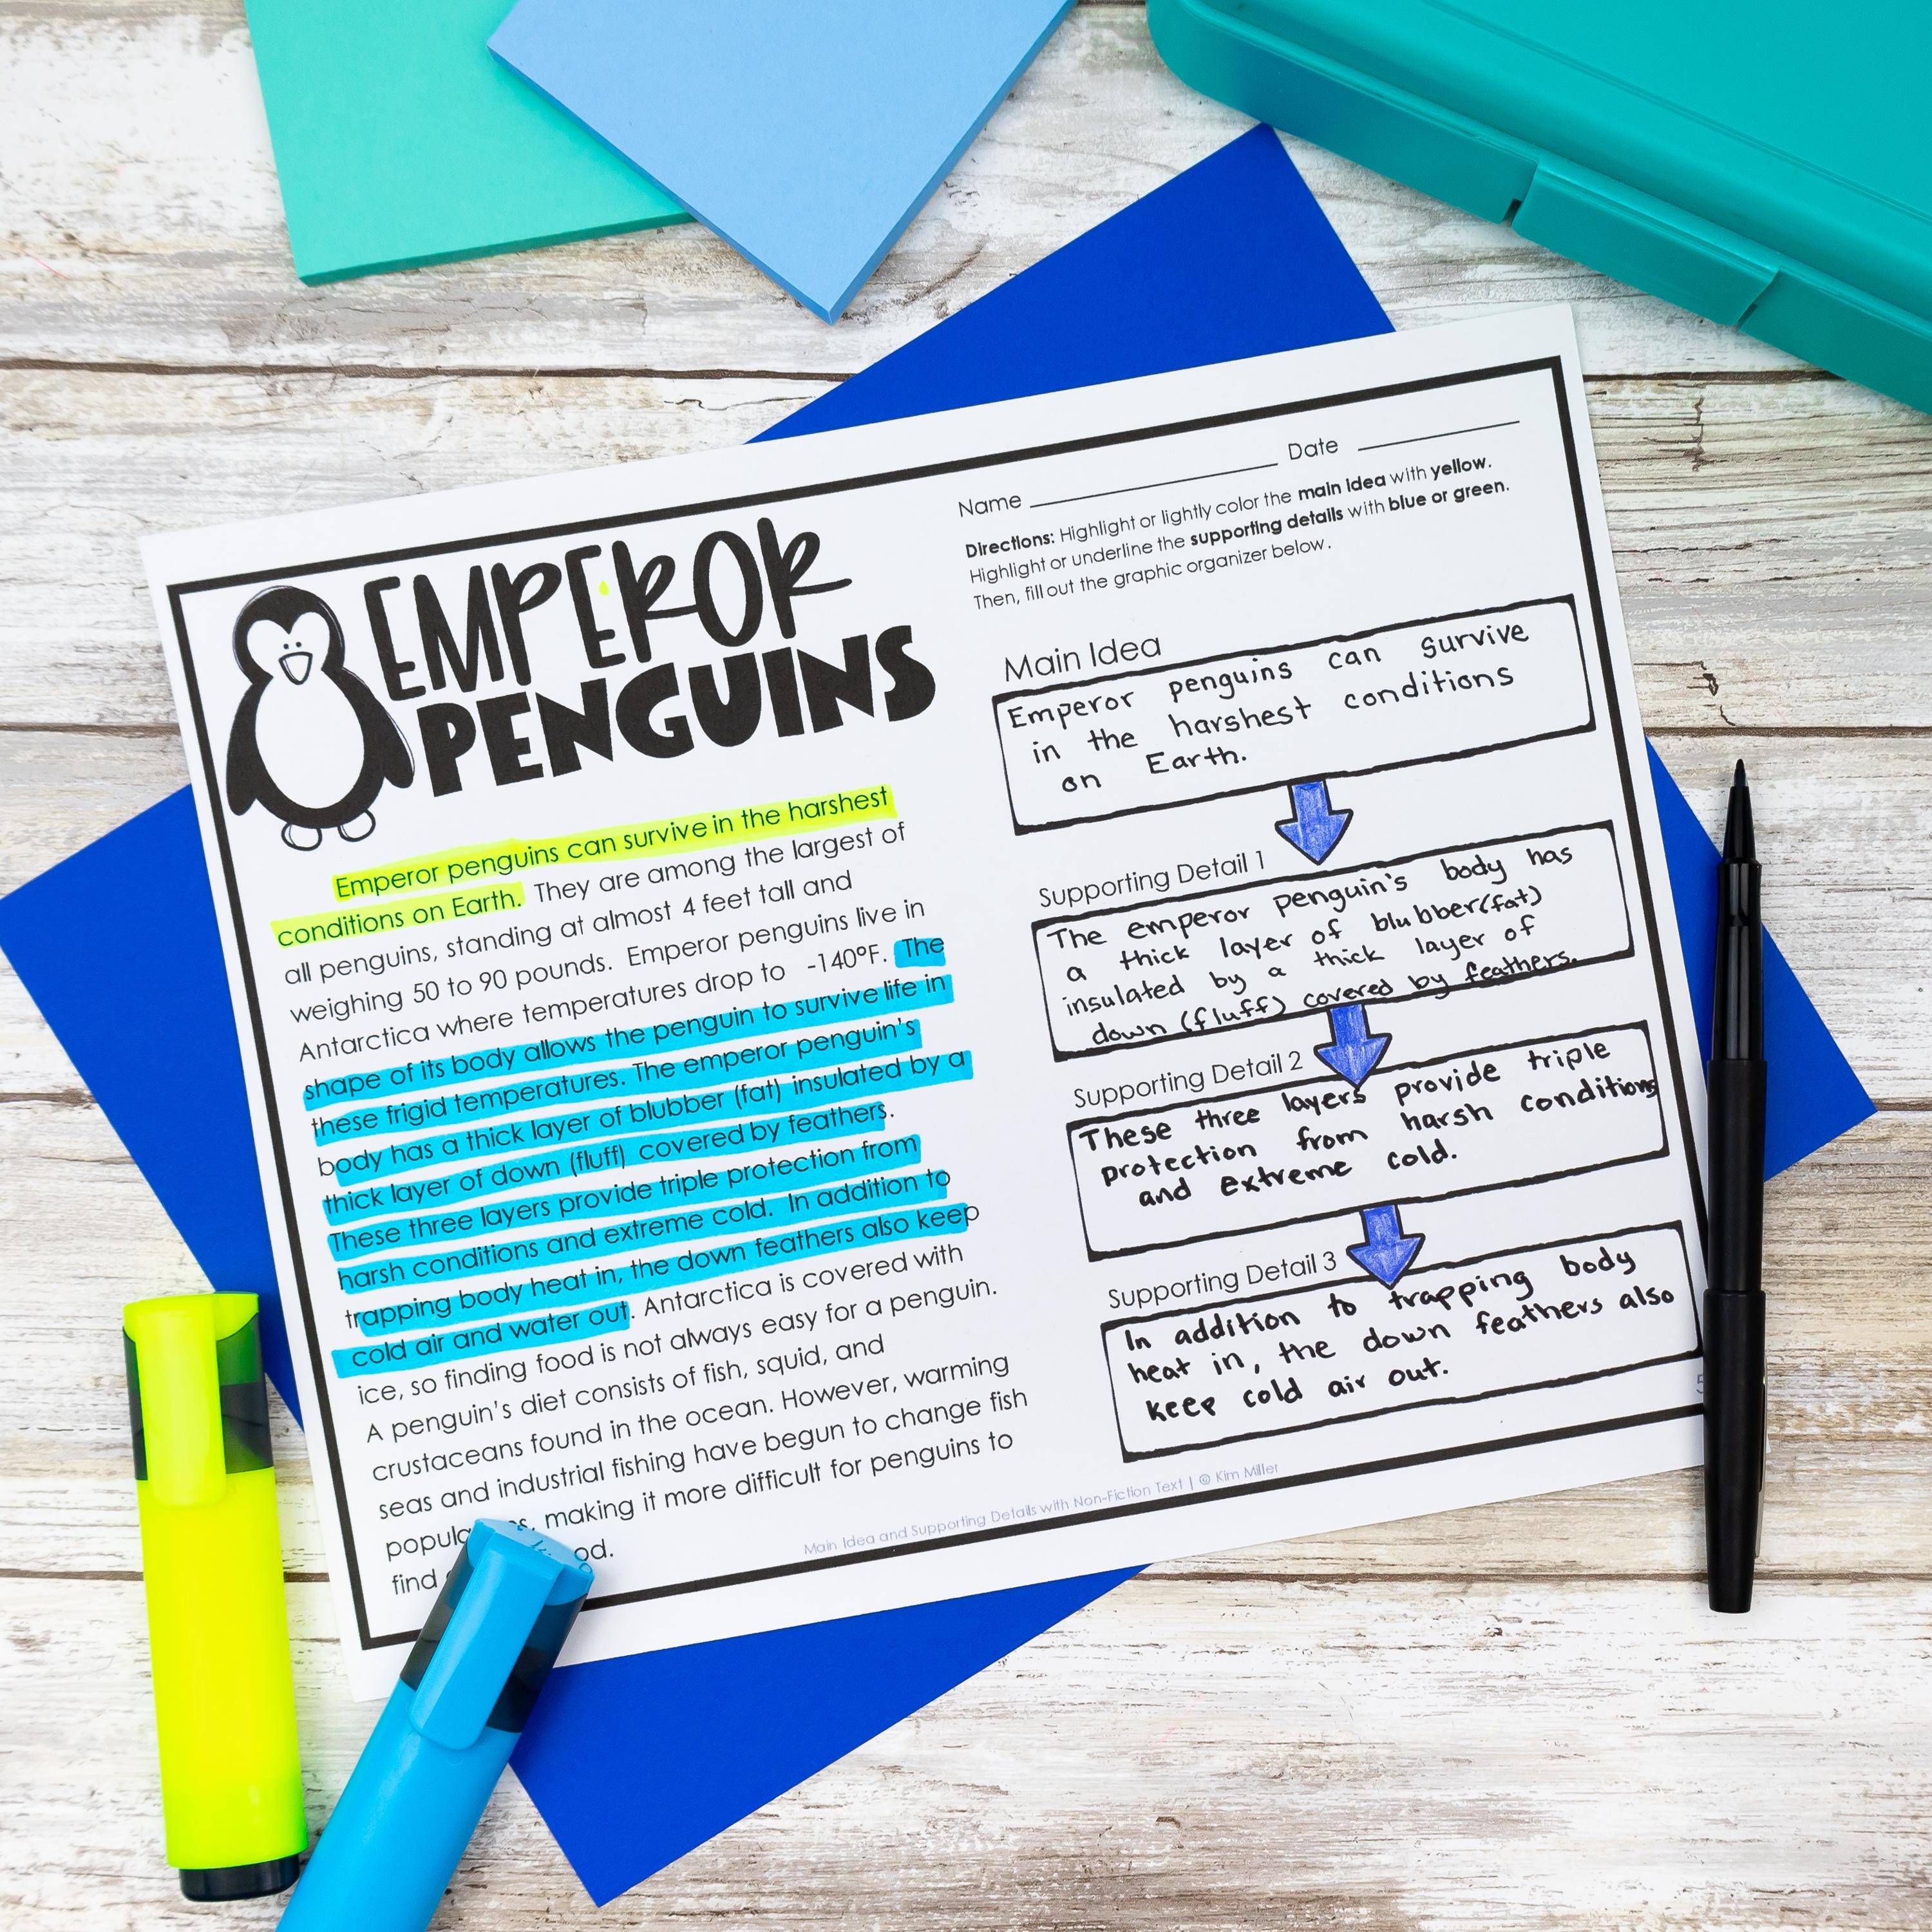 EMPEROR
PENGUINS
Emperor penguins can survive in the harshest
conditions on Earth. They are among the largest of
all penguins, standing at almost 4 feet tall and
weighing 50 to 90 pounds. Emperor penguins live in
Antarctica where temperatures drop to -140°F. The
shape of its body allows the penguin to survive life in
these frigid temperatures. The emperor penguin's
body has a thick layer of blubber (fat) insulated by a
thick layer of down (fluff) covered by feathers.
These three layers provide triple protection from
harsh conditions and extreme cold. In addition to
trapping body heat in, the down feathers also keep
cold air and water out. Antarctica is covered with
ice, so finding food is not always easy for a penguin.
A penguin's diet consists of fish, squid, and
crustaceans found in the ocean. However, warming
seas and industrial fishing have begun to change fish
making it more difficult for penguins to
find
Name Date
Directions: Highlight or lightly color the main idea with yellow.
Highlight or underline the supporting details with blue or green.
Then, fill out the graphic organizer below.
Main Idea
Emperor penguins can survive
in the harshest conditions
on Earth.
Supporting Detail 1
The emperor penguin's body has
a thick layer of blubber(fat)
insulated by a thick layer of
down (fluff) covered by feathers.
Supporting Detail 2
These three layers provide triple
protection from harsh conditions
and extreme cold.
Supporting Detail 3
In addition to trapping body
heat in, the down feathers also
keep cold air out.
Main Idea and Supporting Details with Non-Fiction Text | © Kim Miller